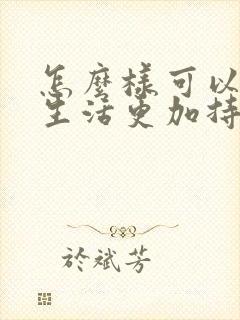 怎麼樣可以
生活更加持
於斌芳